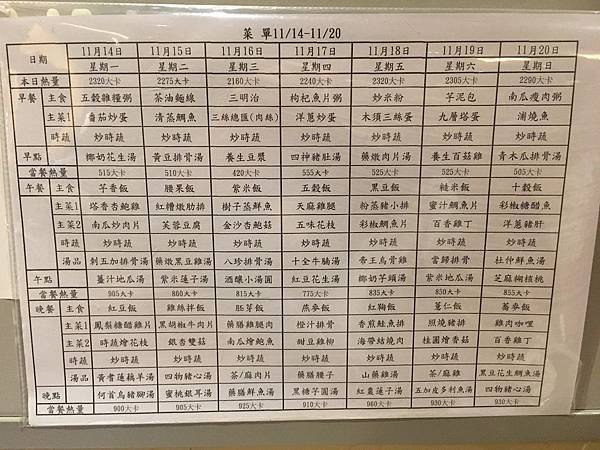 菜 單11/14-11/20
日期 11月14日 11月15日 11月16日 11月17日 11月18日 11月19日 11月20日
星期一 星期二 星期三 星期四 星期五 星期六 星期日
本日熱量 2320大卡 2275大卡 2160大卡 2240大卡 2320大卡 2305大卡 2290大卡
早餐 主食 五穀雜糧粥 茶油麵線 三明治 枸杞魚片粥 炒米粉 芋泥包 南瓜瘦肉粥
主菜1 番茄炒蛋 清蒸鯛魚 三絲總匯(肉絲) 洋蔥炒蛋 木須三絲蛋 九層塔蛋 浦燒魚
時蔬 炒時蔬 炒時蔬 炒時蔬 炒時蔬 炒時蔬 炒時蔬 炒時蔬
早點 椰奶花生湯 黃豆排骨湯 養生豆漿 四神豬肚湯 藥燉肉片湯 養生百菇雞 青木瓜排骨湯
當餐熱量 515大卡 510大卡 420大卡 555大卡 525大卡 525大卡 505大卡
午餐 主食 芋香飯 腰果飯 紫米飯 五穀飯 黑豆飯 糙米飯 十穀飯
主菜1 塔香杏鮑雞 紅糟燉肋排 樹子蒸鮮魚 天麻雞腿 粉蒸豬小排 蜜汁鯛魚片 彩椒糖醋魚
主菜2 南瓜炒肉片 芙蓉豆腐 金沙杏鮑菇 五味花枝 彩椒鯛魚片 百香雞丁 洋蔥豬肝
時蔬 炒時蔬 炒時蔬 炒時蔬 炒時蔬 炒時蔬 炒時蔬 炒時蔬
湯品 刺五加排骨湯 藥燉黑豆雞湯 八珍排骨湯 十全牛腩湯 帝王烏骨雞 當歸排骨 杜仲鮮魚湯
午點 薑汁地瓜湯 紫米蓮子湯 酒釀小湯圓 紅豆花生湯 椰奶芋頭湯 紫米地瓜湯 芝麻糊核桃
當餐熱量 905大卡 860大卡 815大卡 775大卡 835大卡 850大卡 855大卡
晚餐 主食 紅豆飯 雞絲拌飯 胚芽飯 燕麥飯 紅麴飯 薏仁飯 蕎麥飯
主菜1 鳳梨糖醋雞片 黑胡椒牛肉片 藥膳雞腿肉 橙汁排骨 香煎鮭魚排 照燒豬排 雞肉咖哩
主菜2 時蔬燴花枝 銀杏雙菇 南瓜燴鮑魚 甜豆雞柳 海帶結燒肉 桂圓燴香菇 百香雞丁
時蔬 炒時蔬 炒時蔬 炒時蔬 炒時蔬 炒時蔬 炒時蔬 炒時蔬
湯品 黃耆蓮藕羊湯 四物豬心湯 茶/麻肉片 藥膳腰子 山藥雞湯 茶/麻雞 黑豆花生鯛魚湯
晚點 何首烏豬腳湯 蜜桃銀耳湯 藥膳鮮魚湯 黑糖芋圓湯 紅棗蓮子湯 五加皮多利魚湯 四物豬心湯
當餐熱量 900大卡 905大卡 925大卡 910大卡 960大卡 930大卡 930大卡